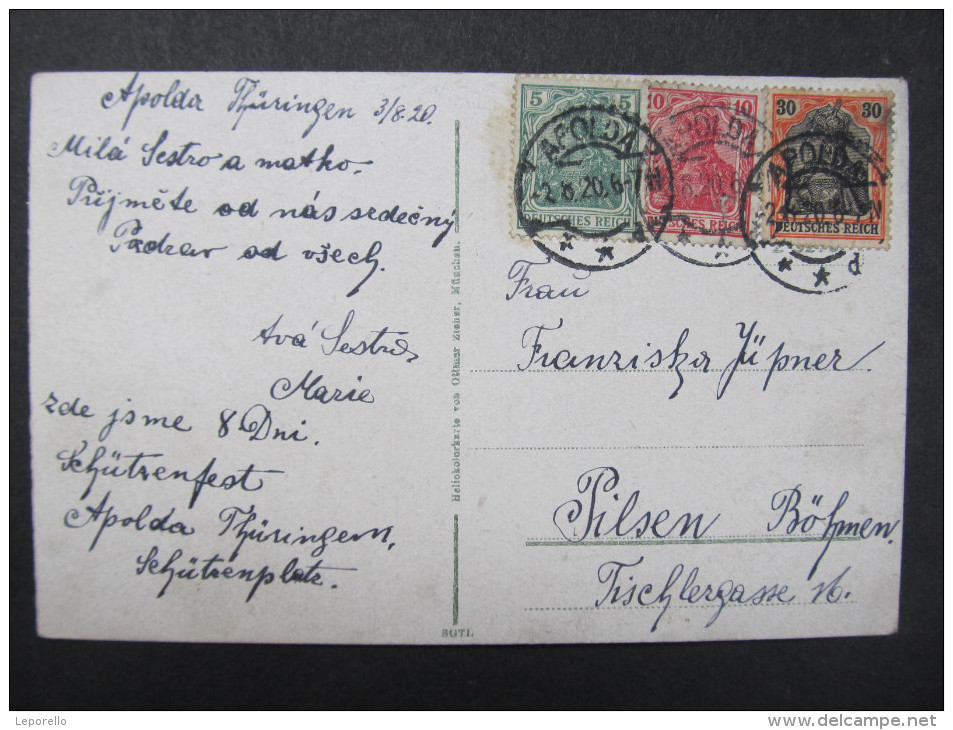 Apolda Thüringen 3/8.20.
Milá Sestro a matko.
Přijměte od nás srdečný
Pozdrav od všech.
tvá Sestra
Marie
zde jsme 8 Dni.
Schützenfest
Apolda Thüringen,
Schützenplatz.
Heliokolorkarte von Ottmar Zieher, München.
SGTL
5 5
DEUTSCHES REICH
10 10
DEUTSCHES REICH
30 30
DEUTSCHES REICH
APOLDA
-2.8.20.6-7N
APOLDA
APOLDA
Frau
Franziska Jüpner.
Pilsen Böhmen.
Tischlergasse 16.
Leporello
www.delcampe.net